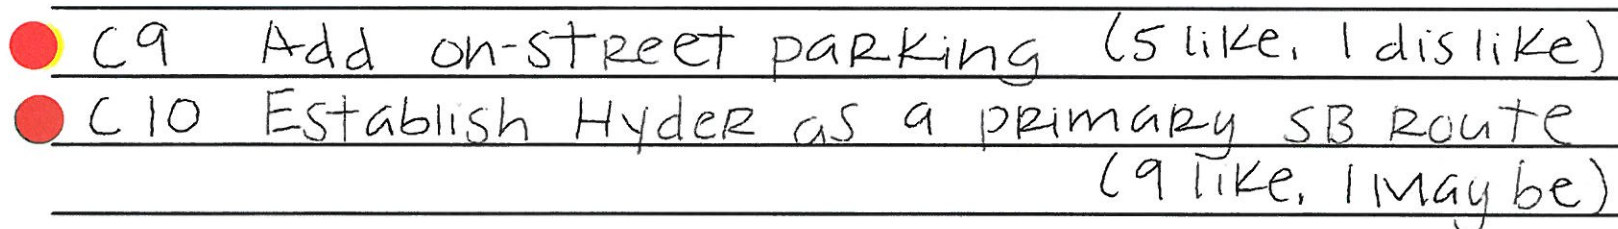 C9 Add on-street parking (5 like, 1 dislike)
C10 Establish Hyder as a primary SB Route
(9 like, 1 Maybe)